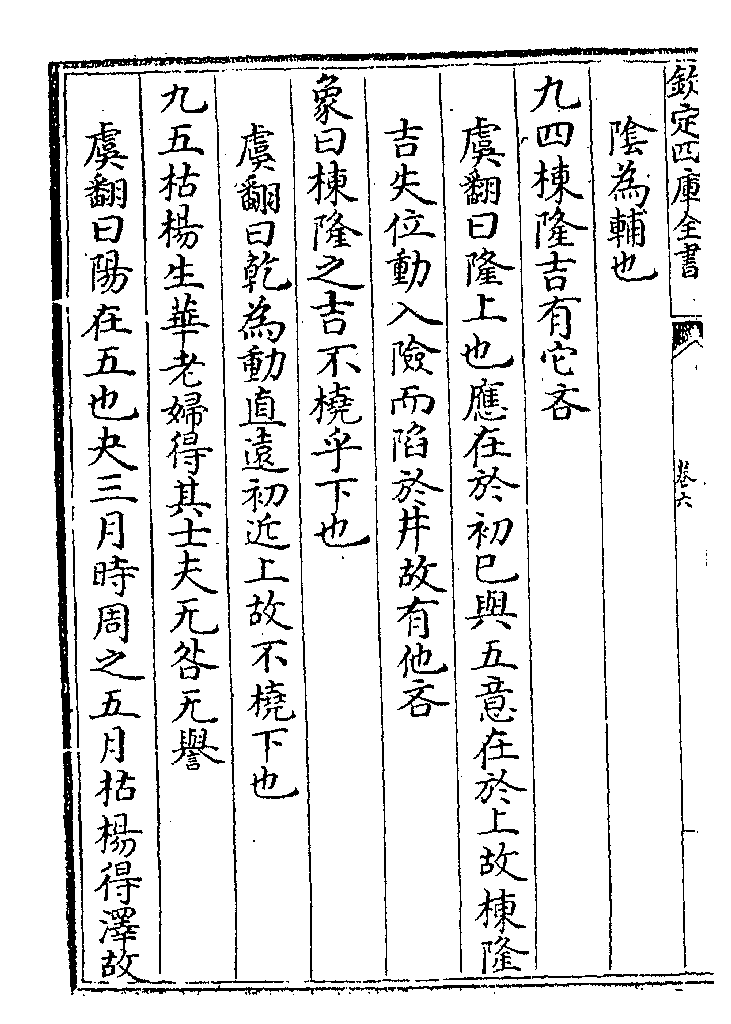 欽定四庫全書
卷六
陰為輔也
九四棟隆吉有它吝
虞翻曰隆上也應在於初已與五意在於上故棟隆
吉失位動入險而陷於井故有他吝
象曰棟隆之吉不橈乎下也
虞翻曰乾為動直遠初近上故不橈下也
九五枯楊生華老婦得其士夫无咎无譽
虞翻曰陽在五也夬三月時周之五月枯楊得澤故